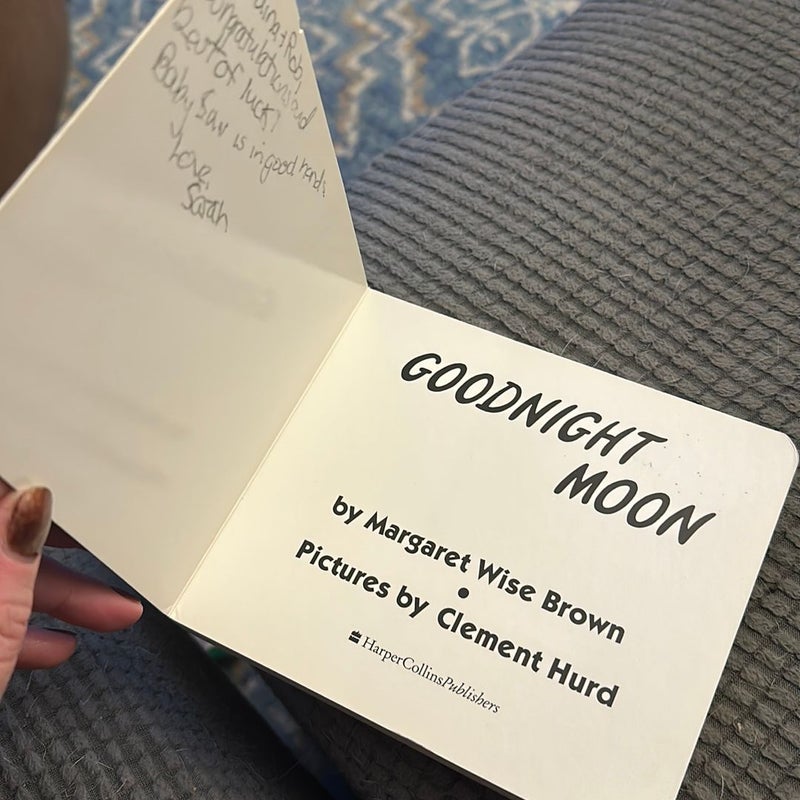 & Rob,
Congratulations and
Best of luck!
Baby Saw is in good hands.
Love,
Sarah
GOODNIGHT
MOON
by Margaret Wise Brown
•
Pictures by Clement Hurd
HarperCollinsPublishers